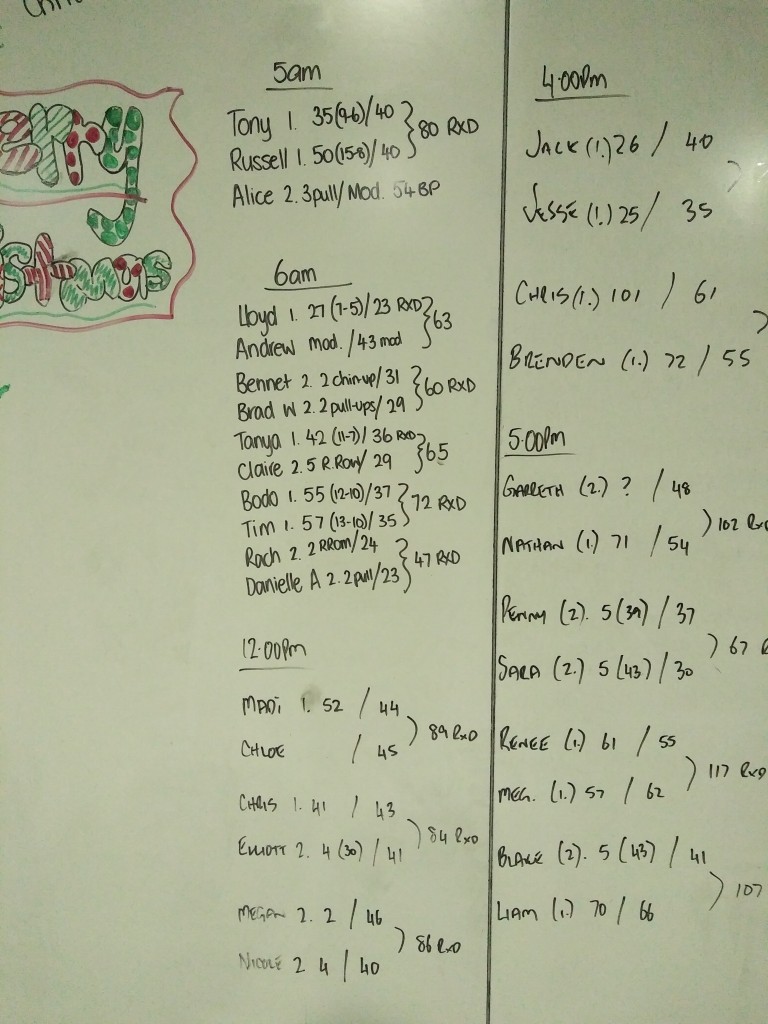 5am
Tony 1. 35(9-6)/40
Russell 1. 50(15-8)/40
80 RXD
Alice 2. 3pull/Mod. 54 BP
6am
Lloyd 1. 27 (7-5)/23 RXD
Andrew mod. /43 mod
63
Bennet 2. 2 chin-up/31
Brad W 2. 2 pull-ups/29
60 RXD
Tanya 1. 42 (11-7)/36 RXD
Claire 2. 5 R.Row/29
65
Bodo 1. 55 (12-10)/37
Tim 1. 57 (13-10)/35
72 RXD
Roch 2. 2 RRow/24
Danielle A 2. 2pull/23
47 RXD
12.00pm
MADI 1. 52 / 44
CHLOE / 45
89 RXD
CHRIS 1. 41 / 43
ELLIOTT 2. 4 (30) / 41
84 RXD
MEGAN 2. 2 / 46
NICOLE 2 4 / 40
86 RXD
4.00pm
JACK (1.) 26 / 40
JESSE (1.) 25 / 35
CHRIS (1.) 101 / 61
BRENDEN (1.) 72 / 55
5.00pm
GARRETH (2.) ? / 48
NATHAN (1.) 71 / 54
102 RXD
PENNY (2). 5 (39) / 37
SARA (2.) 5 (43) / 30
67 R
RENEE (1.) 61 / 55
MEG. (1.) 57 / 62
117 RXD
BLAKE (2). 5 (43) / 41
LIAM (1.) 70 / 66
107